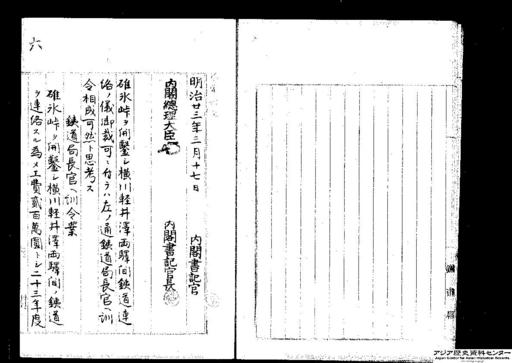 六
明治廿三年三月十七日
内閣書記官
内閣總理大臣
内閣書記官長
碓氷峠ヲ開鑿シ横川軽井澤両驛間鉄道連
絡ノ儀御裁可ニ付テハ左ノ通鉄道局長官ヘ訓
令相成可然ト思考ス
鉄道局長官ヘ訓令案
碓氷峠ヲ開鑿シ横川軽井澤両驛間ノ鉄道
ヲ連絡スル為メ工費貳百萬圓トシ二十三年度
アジア歴史資料センター
Japan Center for Asian Historical Records